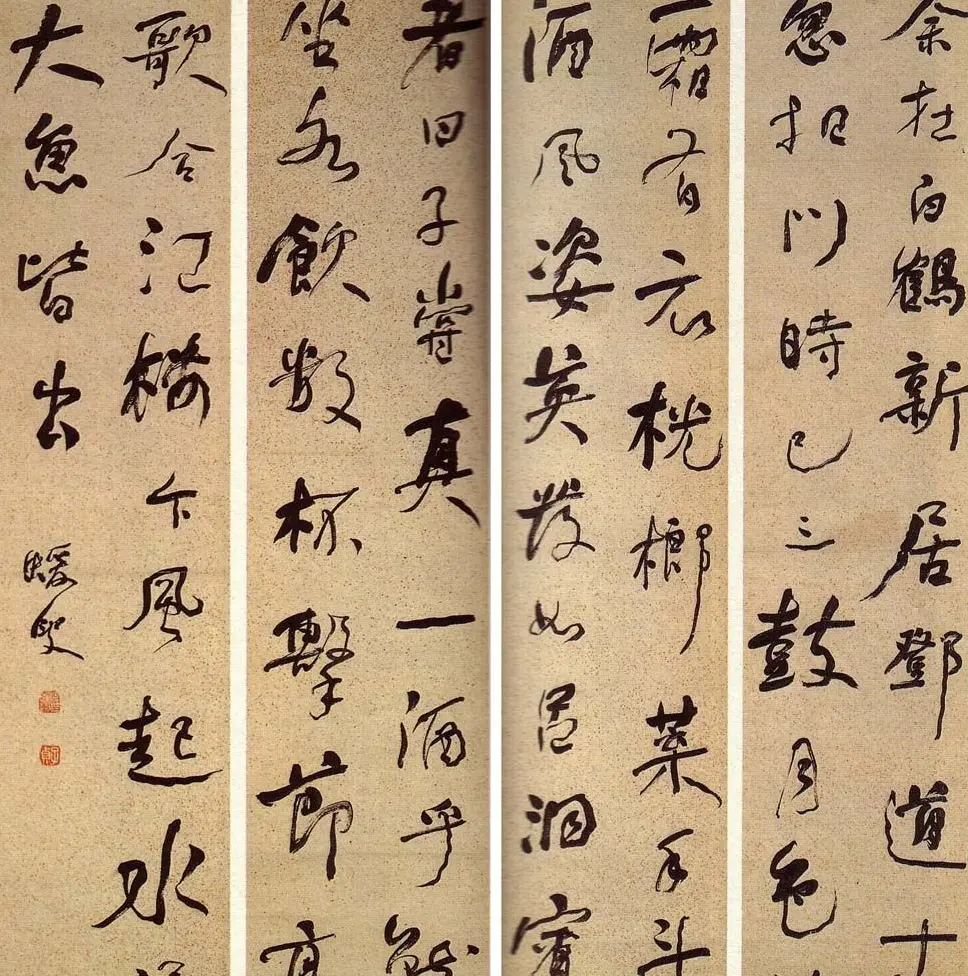 余在白鶴新居鄧道十
忽扣門時已三鼓月色
霜有衣桄榔葉手斗
酒風姿英發如呂洞賓
者曰子嘗真一酒乎就
坐各飲數杯擊節高
歌合江樓下風起水
大魚皆出
蝯叟